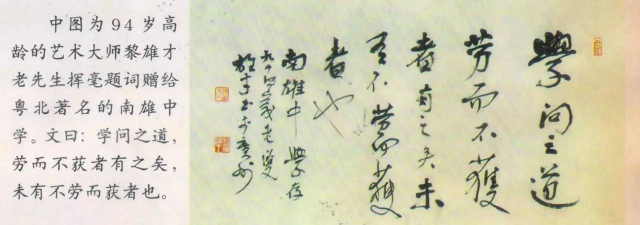 中图为94岁高
龄的艺术大师黎雄才
老先生挥毫题词赠给
粤北著名的南雄中
学。文曰：学问之道，
劳而不获者有之矣，
未有不劳而获者也。
學问之道
劳而不獲
者有之矣未
有不劳而獲
者也
南雄中學存
九十四歲老叟
雄才书于广州